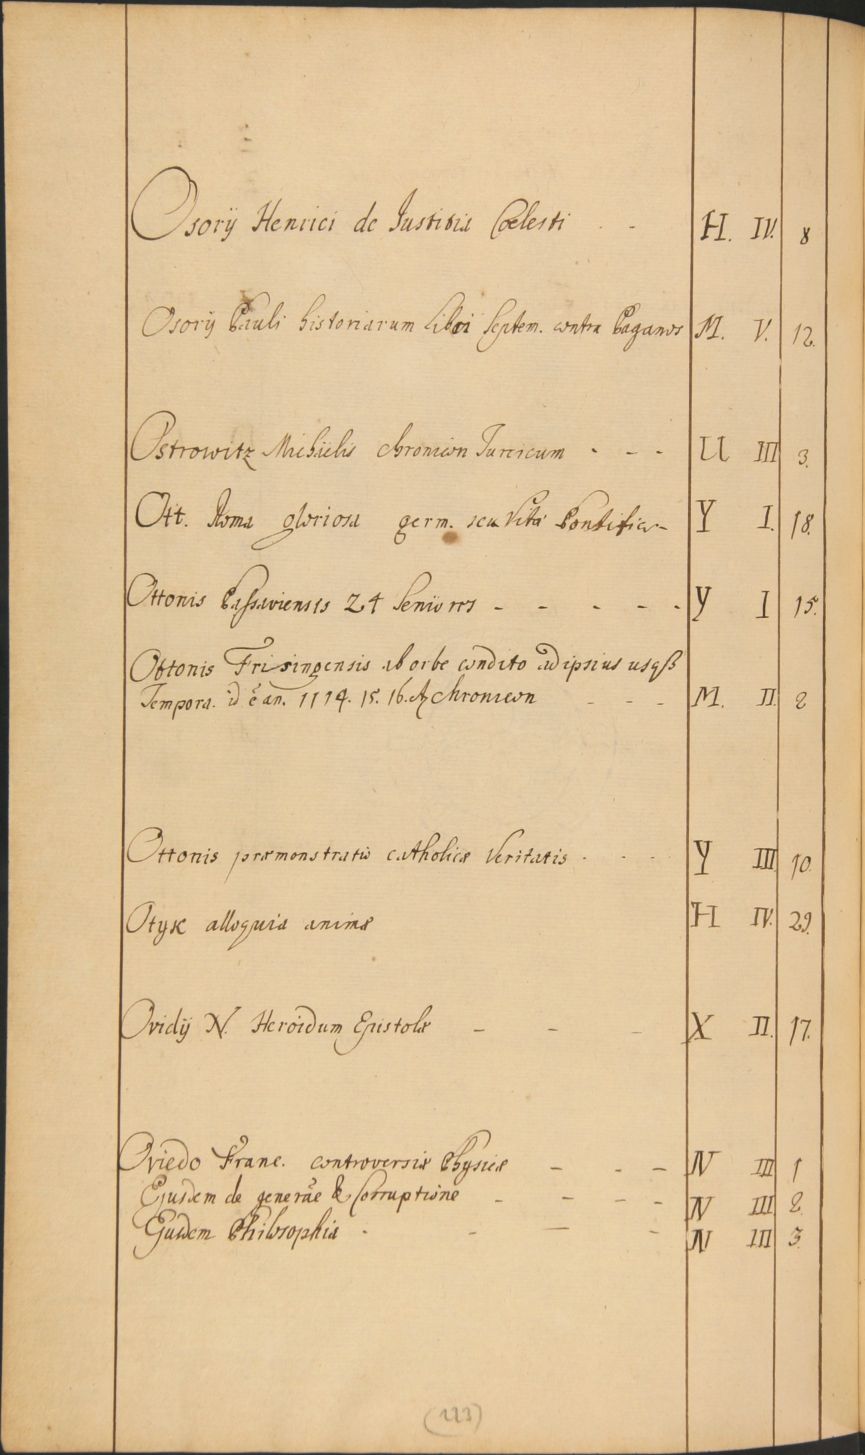 Osorij Henrici de Justitia Coelesti - - H. IV. 8
Osorij Pauli historiarum libri Septem. contra Paganos M. V. 12.
Ostrowitz Michaelis chronicon Turcicum - - - U III 3.
Ott. Roma gloriosa germ. seu Vita Pontificu- Y I. 18.
Ottonis Passaviensis 24 Seniores - - - - - Y I 15.
Ottonis Frisingensis ab orbe condito ad ipsius usqß
Tempora. id ē an. 1114. 15. 16. chronicon - - - M. II. 2
Ottonis præmonstratio catholicæ Veritatis - - - Y III 10.
Otyk alloquia animæ H IV. 29.
Ovidij N. Heroidum Epistolæ - - - X II. 17.
Oviedo Franc. controversiæ Physicæ - - - N III 1
Ejusdem de generāe & Corruptione - - - - N III 2.
Ejusdem Philosophia - - - - N III 3.
(113)